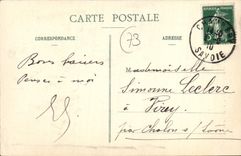 CARTE POSTALE
CORRESPONDANCE
ADRESSE
73
SAVOIE
Bons baisers
Pensez à moi
Mademoiselle
Simonne Leclerc
à
par Chalon s/ Saône